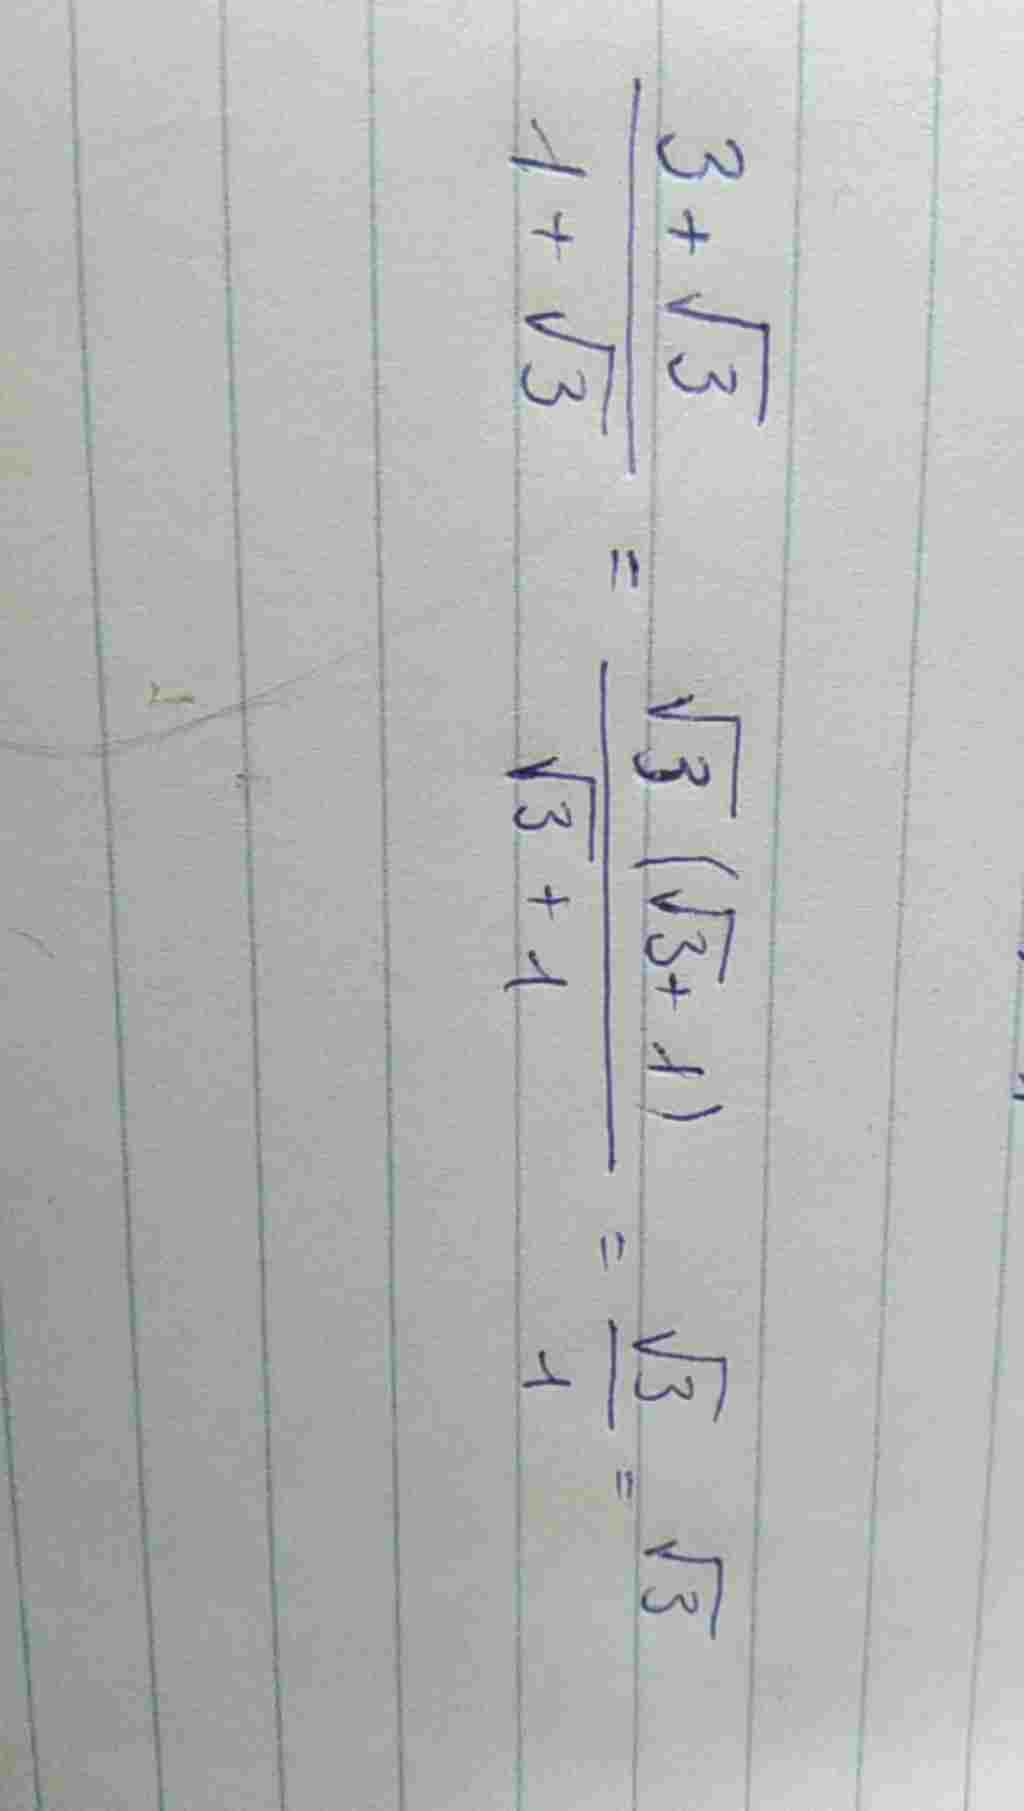 \frac{3 + \sqrt{3}}{1 + \sqrt{3}} = \frac{\sqrt{3} (\sqrt{3} + 1)}{\sqrt{3} + 1} = \frac{\sqrt{3}}{1} = \sqrt{3}